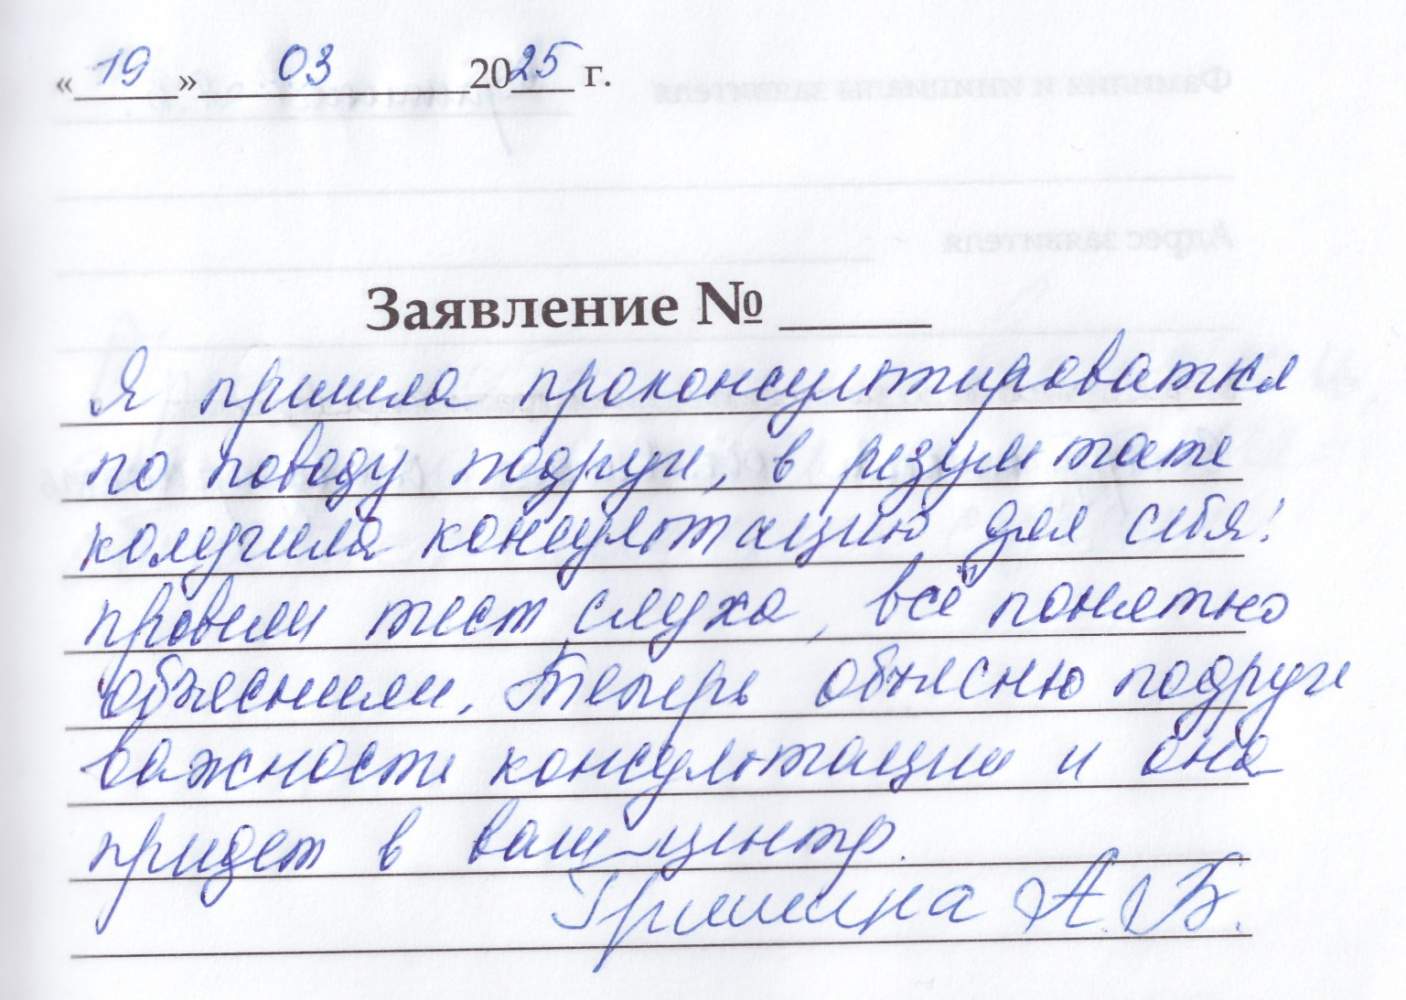 « 19 » 03 2025 г.
Заявление №
Я пришла проконсультироваться
по поводу подруги, в результате
получила консультацию для себя!
провели тест слуха, всё понятно
объяснили. Теперь объясню подруге
важность консультации и она
придет в ваш центр.
Гришина А.В.